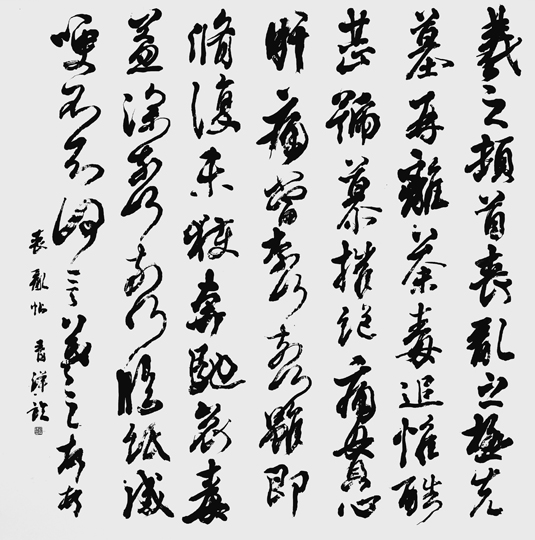 羲之頓首喪亂之極先
墓再離荼毒追惟酷
甚號慕摧絕痛貫心
肝痛當奈何奈何雖即
脩復未獲奔馳哀毒
益深奈何奈何臨紙感
哽不知何言羲之頓首頓首
喪亂帖